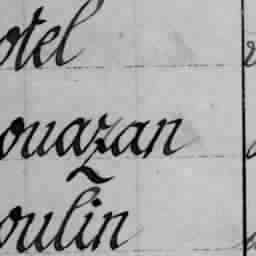 otel
ouazan
oulin